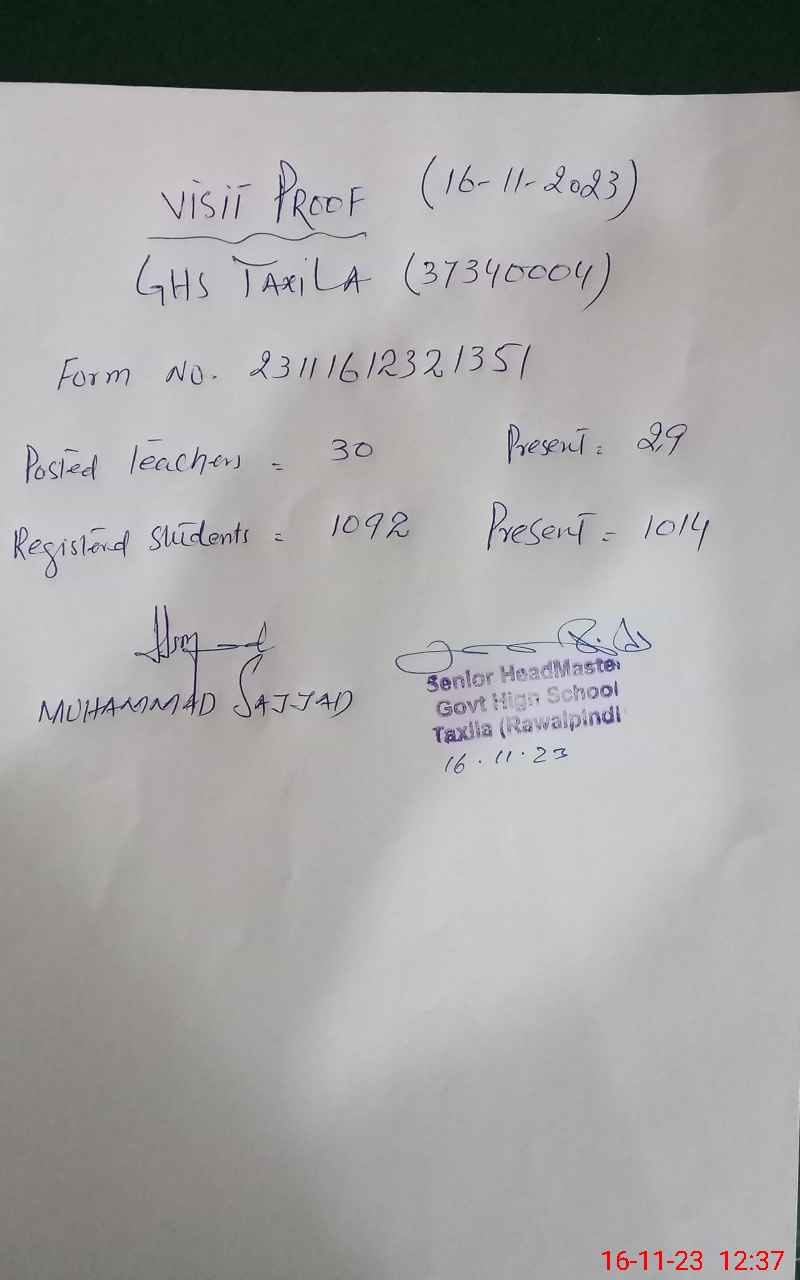 VISIT PROOF (16-11-2023)
GHS TAXILA (37340004)
Form No. 23111612321351
Posted teachers = 30 Present = 29
Registerd students = 1092 Present = 1014
MUHAMMAD SAJJAD
Senior HeadMaster
Govt High School
Taxila (Rawalpindi
16.11.23
16-11-23 12:37